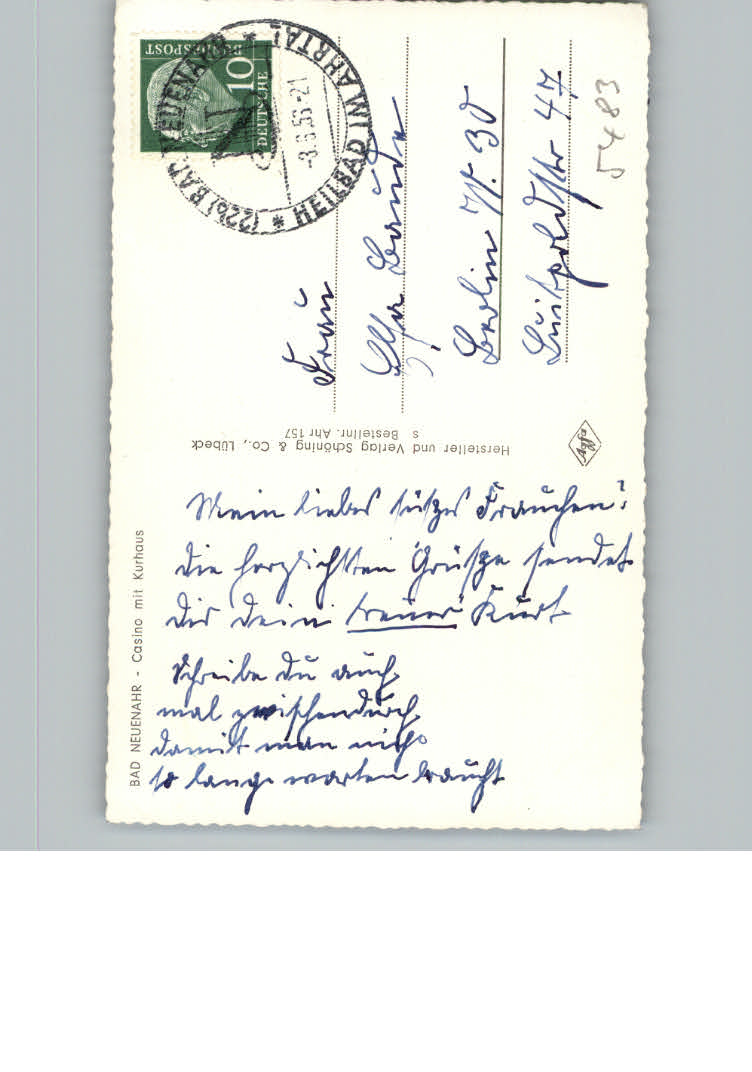 Mein liebes süßes Frauchen!
die herzlichsten Grüße sendet
dir dein treuer Kurt
Schreibe du auch
mal zwischendurch,
damit man nicht
so lange warten braucht
BAD NEUENAHR - Casino mit Kurhaus
Hersteller und Verlag Schöning & Co., Lübeck
s Bestellnr. Ahr 157
Agfa
Frau
Berlin W. 30
Luitpoldstr 47
5483
DEUTSCHE
BUNDESPOST
10
(22b) BAD NEUENAHR * HEILBAD IM AHRTAL *